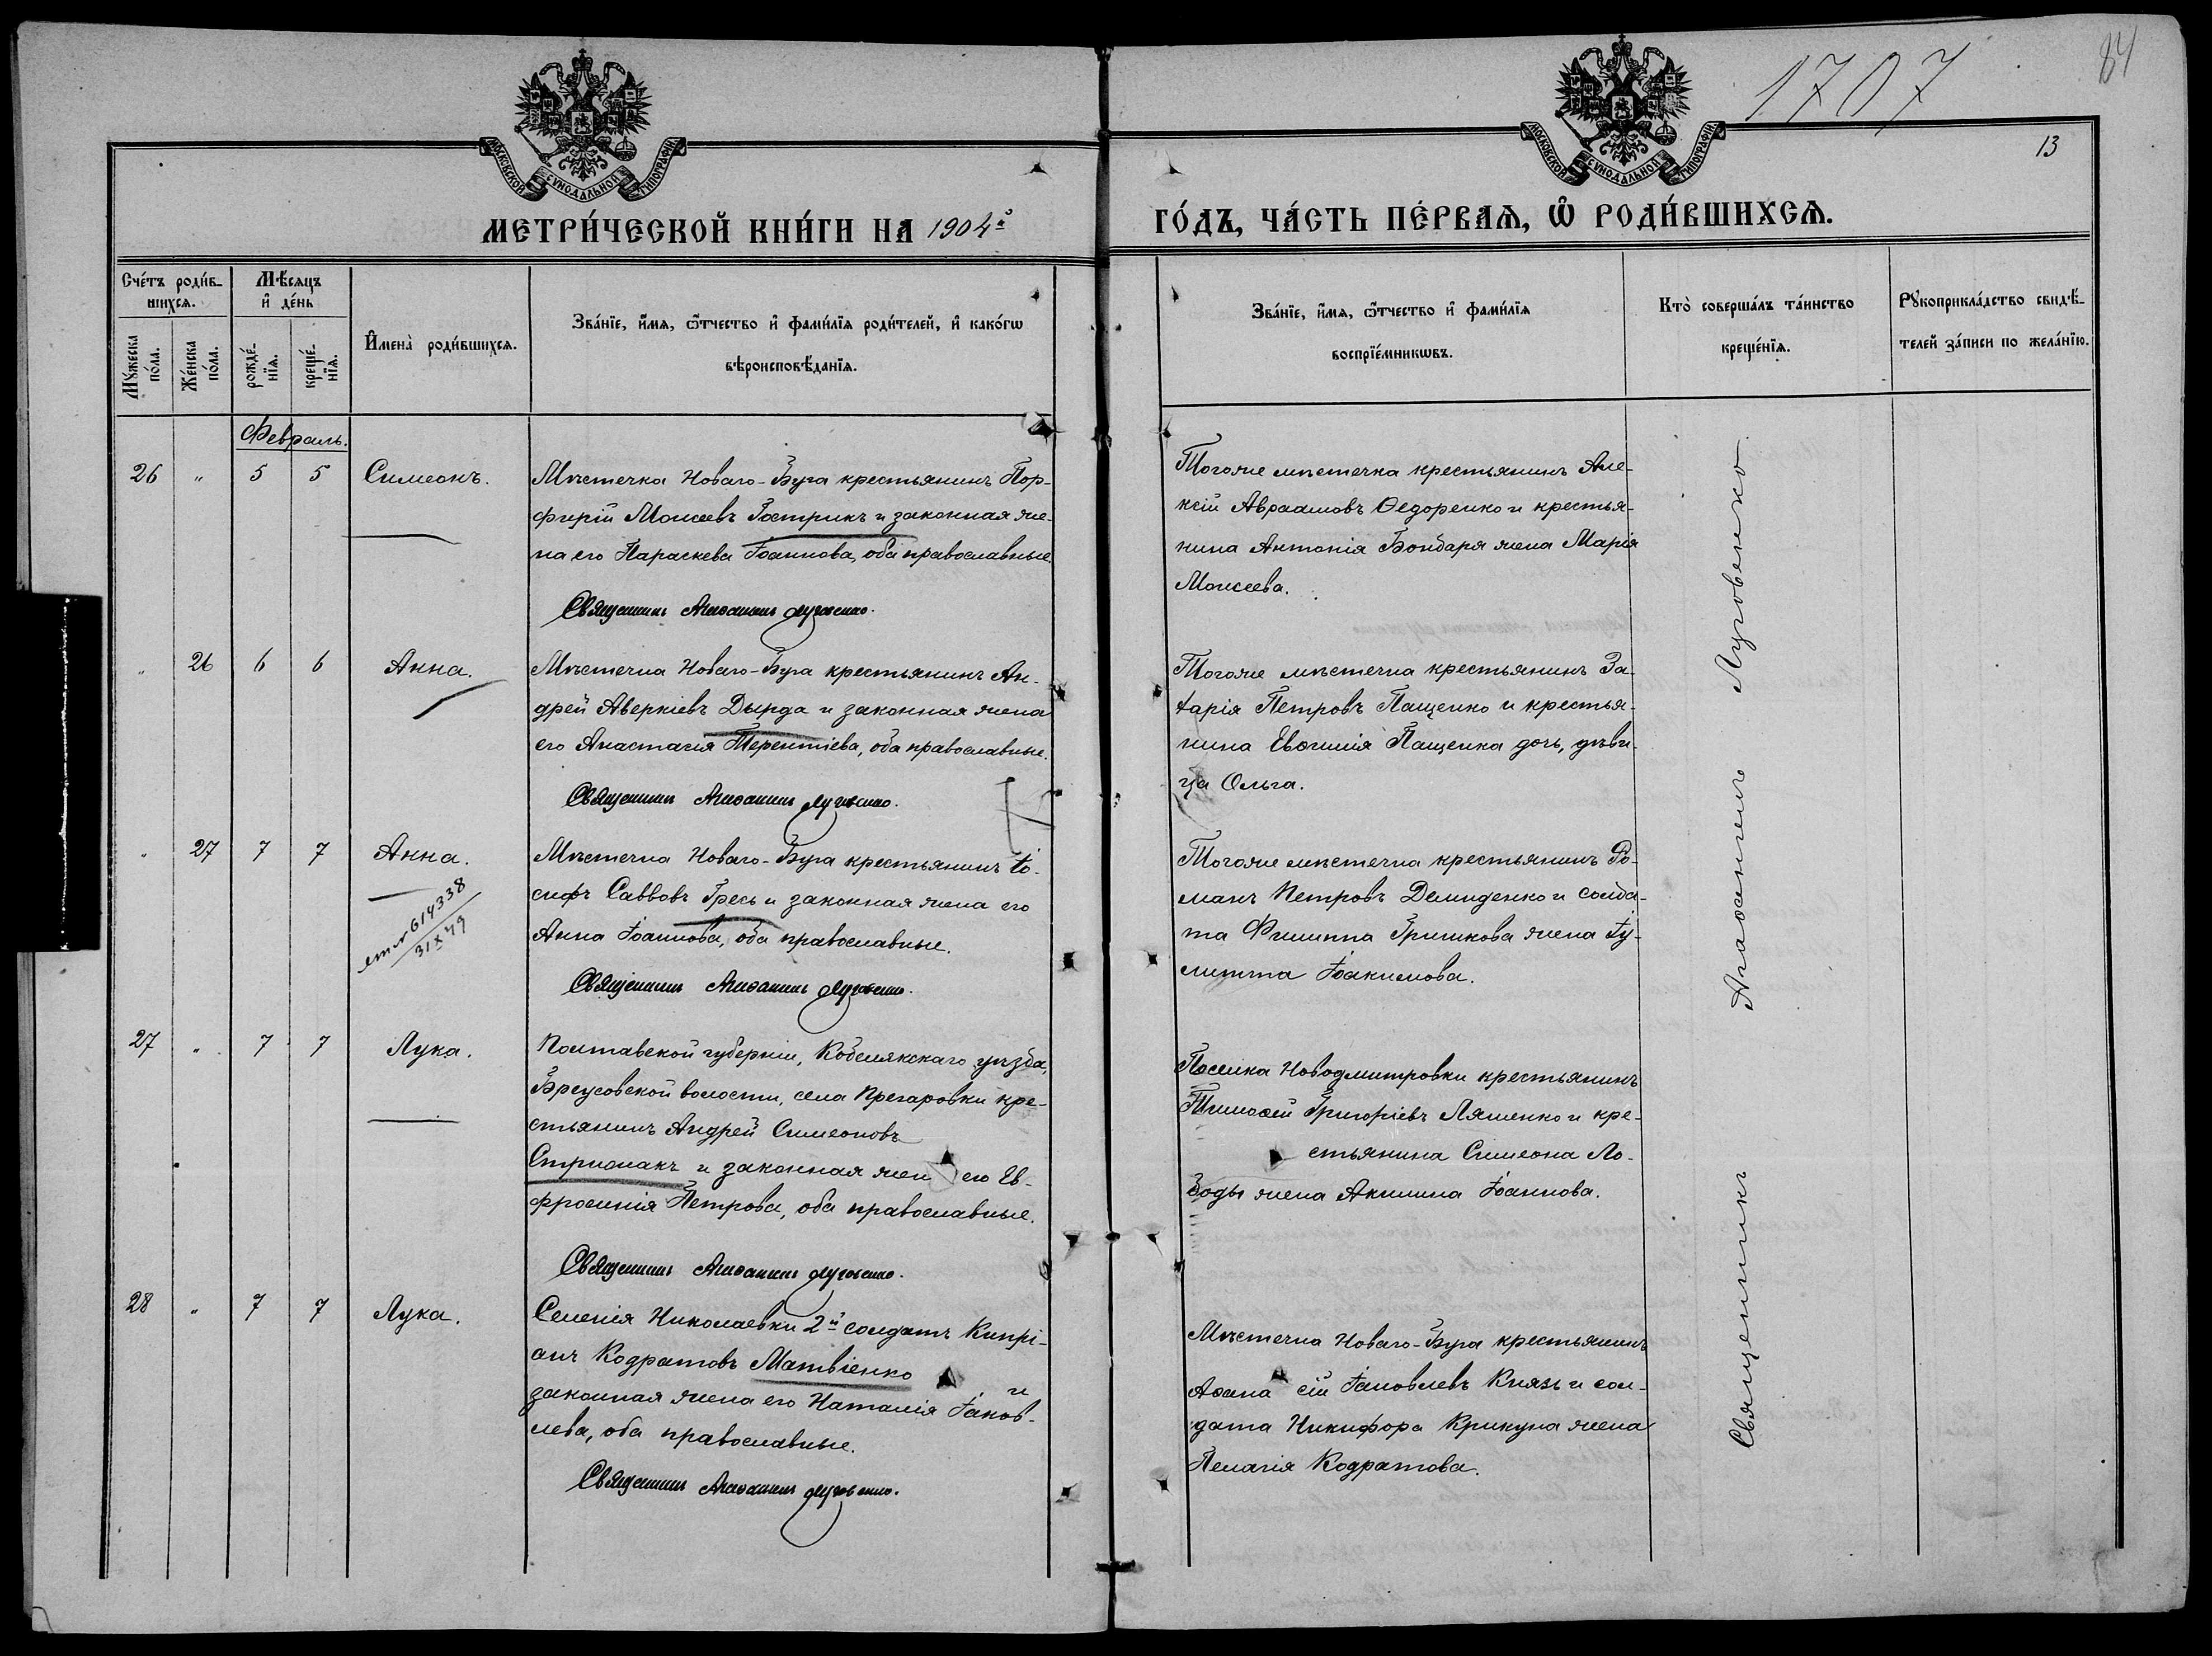 1707
84
13
МОСКОВСКОЙ СѴНОДАЛЬНОЙ ТИПОГРАФІИ
МОСКОВСКОЙ СѴНОДАЛЬНОЙ ТИПОГРАФІИ
МЕТРИ́ЧЕСКОЙ КНИ́ГИ НА 1904й ГО́ДЪ, ЧА́СТЬ ПЕ́РВАѦ, Ѽ РОДИ́ВШИХСѦ.
Сче́тъ роди́в-
шихсѧ.
Мꙋжеска по́ла.
Же́нска по́ла.
Мѣ́сѧцъ
и҆ де́нь
рожде́-
нїѧ.
креще́-
нїѧ.
И҆мена̀ роди́вшихсѧ.
Зва́нїе, и҆́мѧ, ѻ҆́тчество и҆ фами́лїѧ роди́телей, и҆ како́гѡ
вѣроисповѣ́данїѧ.
Зва́нїе, и҆́мѧ, ѻ҆́тчество и҆ фами́лїѧ
воспрїе́мникѡвъ.
Кто̀ соверша́лъ та́инство
креще́нїѧ.
Рꙋкоприкла́дство свидѣ́-
телей за́писи по жела́нїю.
Февраль.
26 " 5 5 Симеонъ.
Мѣстечка Новаго-Буга крестьянинъ Пор-
фирій Моисеевъ Гострикъ и законная же-
на его Параскева Іоаннова, оба православные.
Священникъ Агаѳангелъ Луговенко.
Тогоже мѣстечка крестьянинъ Але-
ксій Авраамовъ Ѳедоренко и крестья-
нина Антонія Бондаря жена Марія
Моисеева.
" 26 6 6 Анна.
Мѣстечка Новаго-Буга крестьянинъ Ан-
дрей Аверкіевъ Дырда и законная жена
его Анастасія Терентіева, оба православные.
Священникъ Агаѳангелъ Луговенко.
Тогоже мѣстечка крестьянинъ За-
харія Петровъ Пащенко и крестья-
нина Евѳимія Пащенка дочь, дѣви-
ца Ольга.
" 27 7 7 Анна.
614338
31 X 49
Мѣстечка Новаго-Буга крестьянинъ Іо-
сифъ Саввовъ Гресь и законная жена его
Анна Іоаннова, оба православные.
Священникъ Агаѳангелъ Луговенко.
Тогоже мѣстечка крестьянинъ Ро-
манъ Петровъ Демиденко и солда-
та Филиппа Гришкова жена Іу-
литта Іоакимова.
27 " 7 7 Лука.
Полтавской губерніи, Кобелякскаго уѣзда,
Бреусовской волости, села Прегаровки кре-
стьянинъ Андрей Симеоновъ
Стрижакъ и законная жен его Ев-
фросинія Петрова, оба православные.
Священникъ Агаѳангелъ Луговенко.
Поселка Новодмитровки крестьянинъ
Тимоѳей Григоріевъ Ляшенко и кре-
стьянина Симеона Ло-
боды жена Акилина Іоаннова.
28 " 7 7 Лука.
Селенія Николаевки 2й солдатъ Кипрі-
анъ Кодратовъ Матвіенко и
законная жена его Наталія Іаков-
лева, оба православные.
Священникъ Агаѳангелъ Луговенко.
Мѣстечка Новаго-Буга крестьянинъ
Аѳанасій Іаковлевъ Князь и сол-
дата Никифора Крикуна жена
Пелагія Кодратова.
Священникъ Агаѳангелъ Луговенко